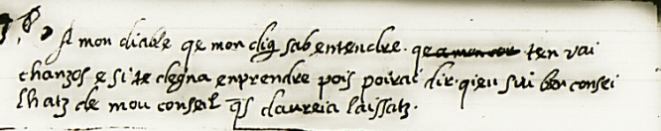 A mon diable qe mon dig sab entendre. qe ten vai
chanzos e si te degna enprendre pois poirai dir. qieu sui ben consei
lhatz de mon conseil qs daureia laissatz.